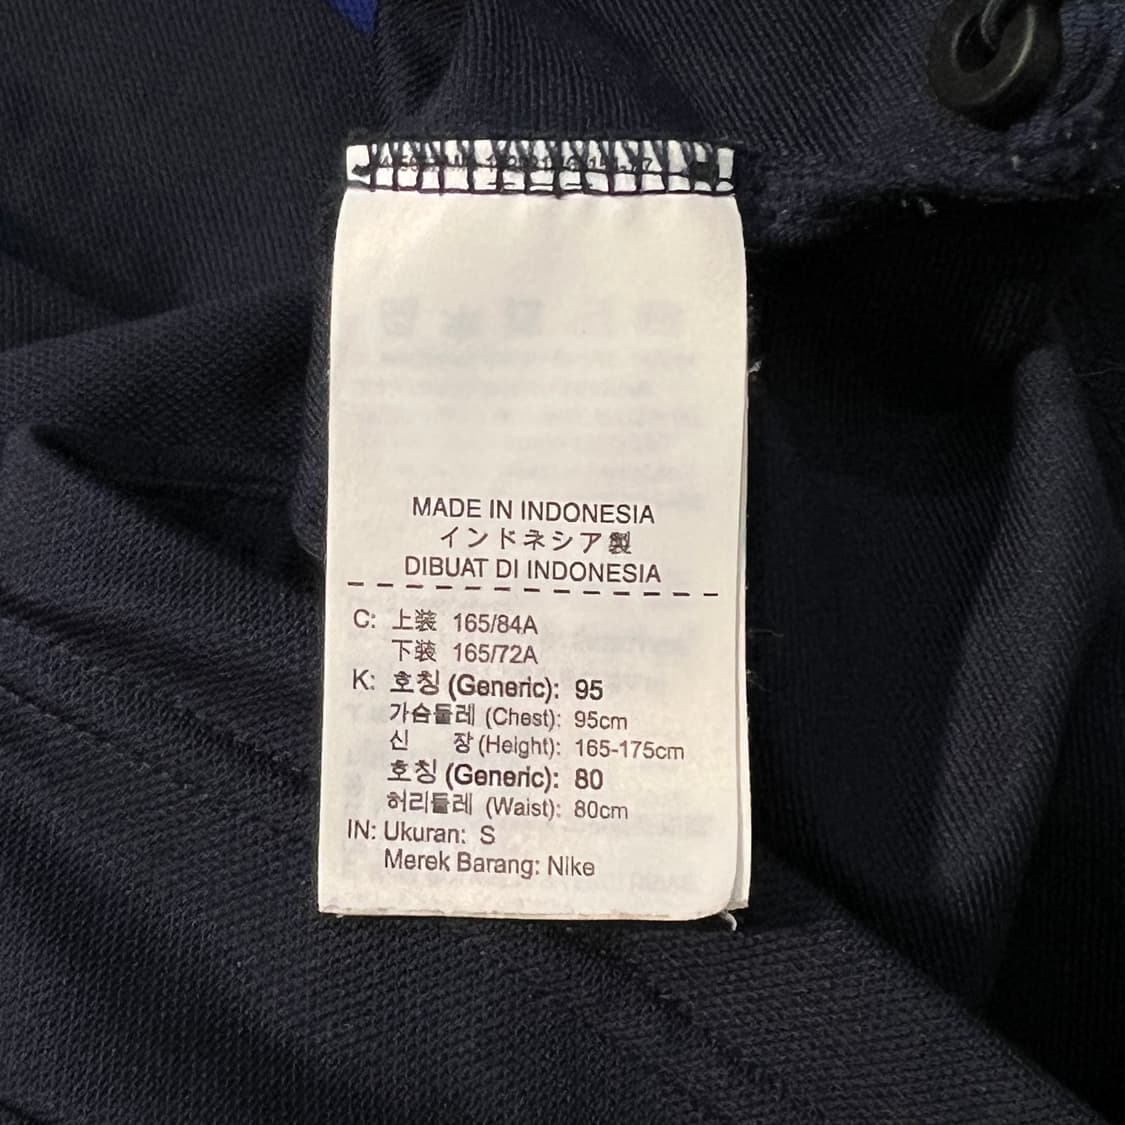 MADE IN INDONESIA
インドネシア製
DIBUAT DI INDONESIA
C: 上装 165/84A
下装 165/72A
K: 호칭 (Generic): 95
가슴둘레 (Chest): 95cm
신 장 (Height): 165-175cm
호칭 (Generic): 80
허리둘레 (Waist): 80cm
IN: Ukuran: S
Merek Barang: Nike